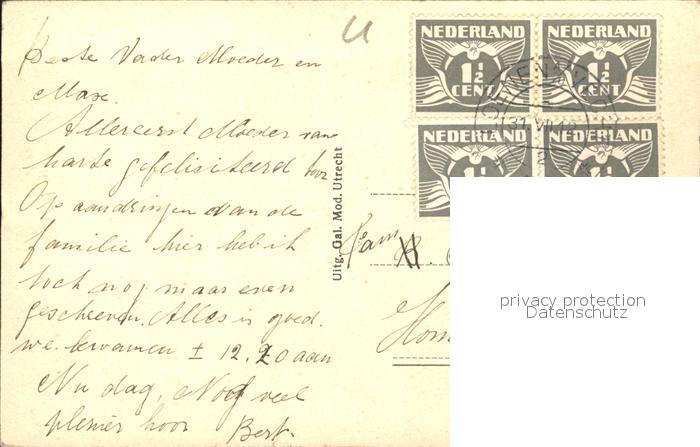 Beste Vader Moeder en
Max.
Allereerst Moeder van
harte gefelisiteerd hoor
Op aandringen van de
familie hier heb ik
toch nog maar even
geschreven. Alles is goed.
we kwamen ± 12.20 aan
Nu dag, Nog veel
plezier hoor
Bert.
U
Uitg. Gal. Mod. Utrecht
NEDERLAND
1½
CENT
NEDERLAND
1½
CENT
NEDERLAND
NEDERLAND
31 VII
Fam
H.
privacy protection
Datenschutz